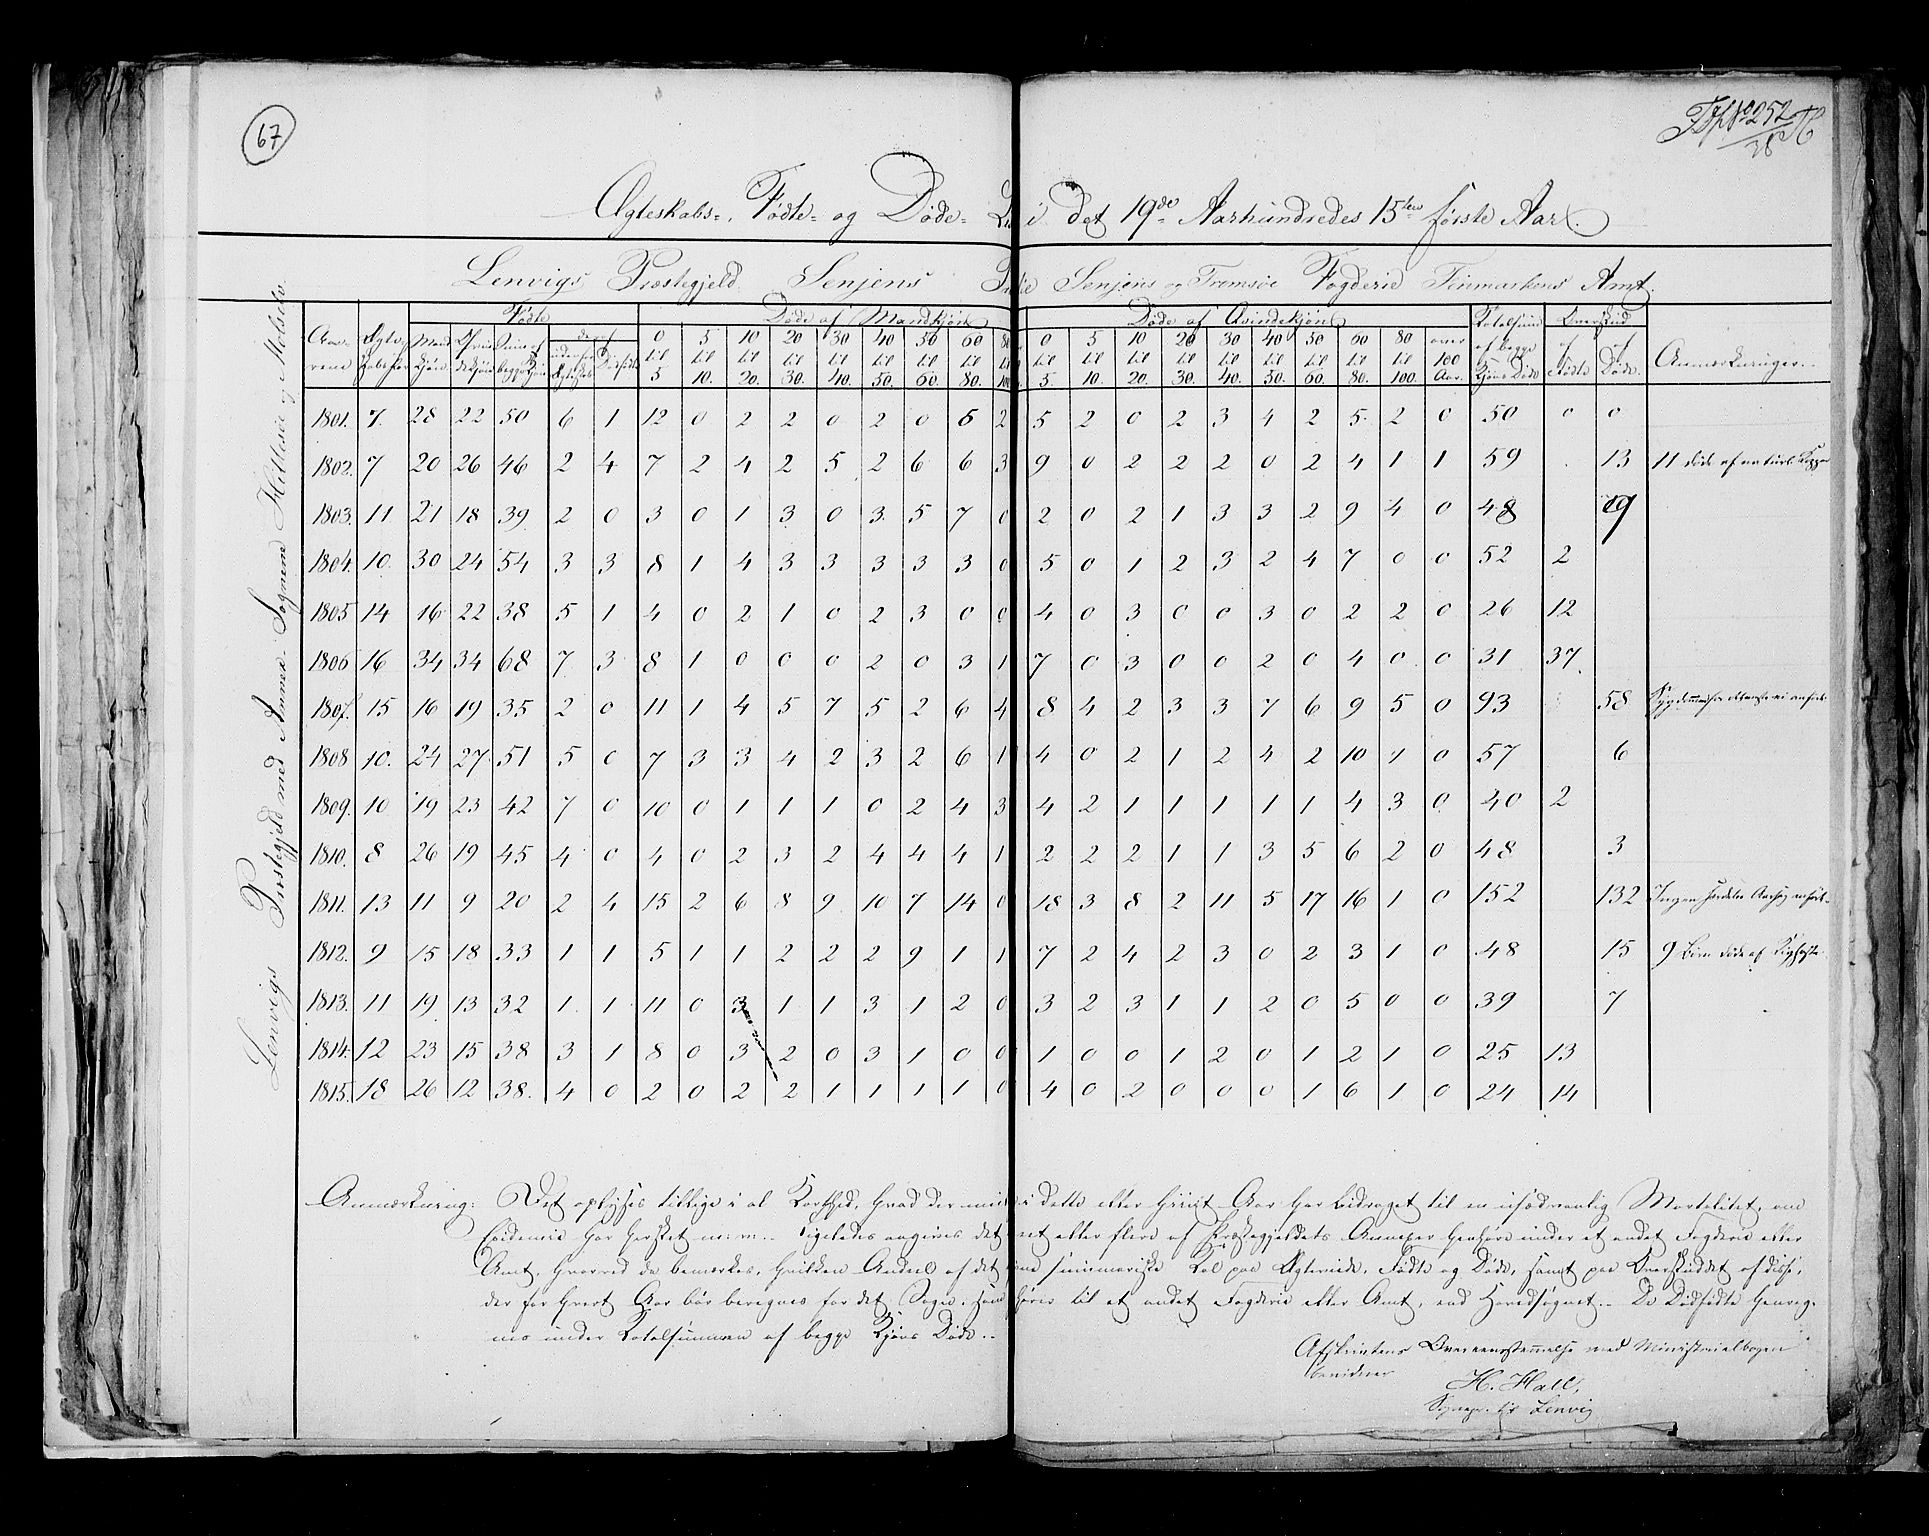 67
No 252
Ægteskabs-, Fødte- og Døde- Li i det 19de Aarhundredes 15ten første Aar.
Lenvigs Præstegjeld Senjens Senjens og Tromsøe Fogderie Finmarkens Amt.
Lenvigs Præstegjeld med Annexa Sognene Hillesøe og Molselv.
Fødte Døde af Mandkjøn Døde af Qvindekjøn Totalsum Overskud
Aar- Ægte- Mand- Qvin- Sum af deraf 0 5 10 20 30 40 50 60 80 0 5 10 20 30 40 50 60 80 over af begge af af Anmærkninger.
rene skaber kjøn dekjøn begge Kjøn uden for Ægteskab Dødfødte til til til til til til til til til til til til til til til til til til 100 Kjøns Døde Fødte Døde.
5 10. 20. 30. 40. 50. 60. 80. 100. 5. 10. 20. 30. 40. 50. 60. 80. 100. Aar.
1801. 7. 28 22 50 6 1 12 0 2 2 0 2 0 6 2 5 2 0 2 3 4 2 5 2 0 50 0 0
1802. 7 20 26 46 2 4 7 2 4 2 5 2 6 6 3 9 0 2 2 2 0 2 4 1 1 59 13 11 døde af naturl. Kopper
1803. 11 21 18 39 2 0 3 0 1 3 0 3 5 7 0 2 0 2 1 3 3 2 9 4 0 48 9
1804. 10. 30 24 54 3 3 8 1 4 3 3 3 3 3 0 5 0 1 2 3 2 4 7 0 0 52 2
1805 14 16 22 38 5 1 4 0 2 1 0 2 3 0 0 4 0 3 0 0 3 0 2 2 0 26 12
1806 16 34 34 68 7 3 8 1 0 0 0 2 0 3 1 7 0 3 0 0 2 0 4 0 0 31 37
1807. 15 16 19 35 2 0 11 1 4 5 7 5 2 6 4 8 4 2 3 3 7 6 9 5 0 93 58
1808 10. 24 27 51 5 0 7 3 3 4 2 3 2 6 1 4 0 2 1 2 4 2 10 1 0 57 6
1809. 10 19 23 42 7 0 10 0 1 1 1 0 2 4 3 4 2 1 1 1 1 1 4 3 0 40 2
1810. 8 26 19 45 4 0 4 0 2 3 2 4 4 4 1 2 2 2 1 1 3 5 6 2 0 48 3
1811. 13 11 9 20 2 4 15 2 6 8 9 10 7 14 0 18 3 8 2 11 5 17 16 1 0 152 132 Ingen særdeles Aarsag anført.
1812. 9 15 18 33 1 1 5 1 1 2 2 2 9 1 1 7 2 4 2 3 0 2 3 1 0 48 15 9 Børn døde af Kighoste
1813. 11 19 13 32 1 1 11 0 3 1 1 3 1 2 0 3 2 3 1 1 2 0 5 0 0 39 7
1814. 12 23 15 38 3 1 8 0 3 2 0 3 1 0 0 1 0 0 1 2 0 1 2 1 0 25 13
1815. 18 26 12 38. 4 0 2 0 2 2 1 1 1 1 0 4 0 2 0 0 0 1 6 1 0 24 14
Anmærkning: Det oplyses tillige i al Korthed, hvad der i dette eller hiint Aar har bidraget til en usædvanlig Mortalitet, om
Epidemie har hersket m: m.. Ligeledes angives det et eller flere af Præstegjeldets Annexer henhøre under et andet Fogderie eller
Amt, hvorved da bemærkes, hvilken Andeel af det summariske Tal paa Ægteviede, Fødte og Døde, samt paa Overskuddet af disse,
der for hvert Aar bør beregnes for det Sogn, som hører til et andet Fogderie eller Amt, end Hovedsognet. De Dødfødte henreg-
nes under Totalsummen af begge Kjøns Døde.
Afskriftens Overeensstemmelse med Ministerialbogen
bevidner
H. Hall,
Sognepr. til Lenvig